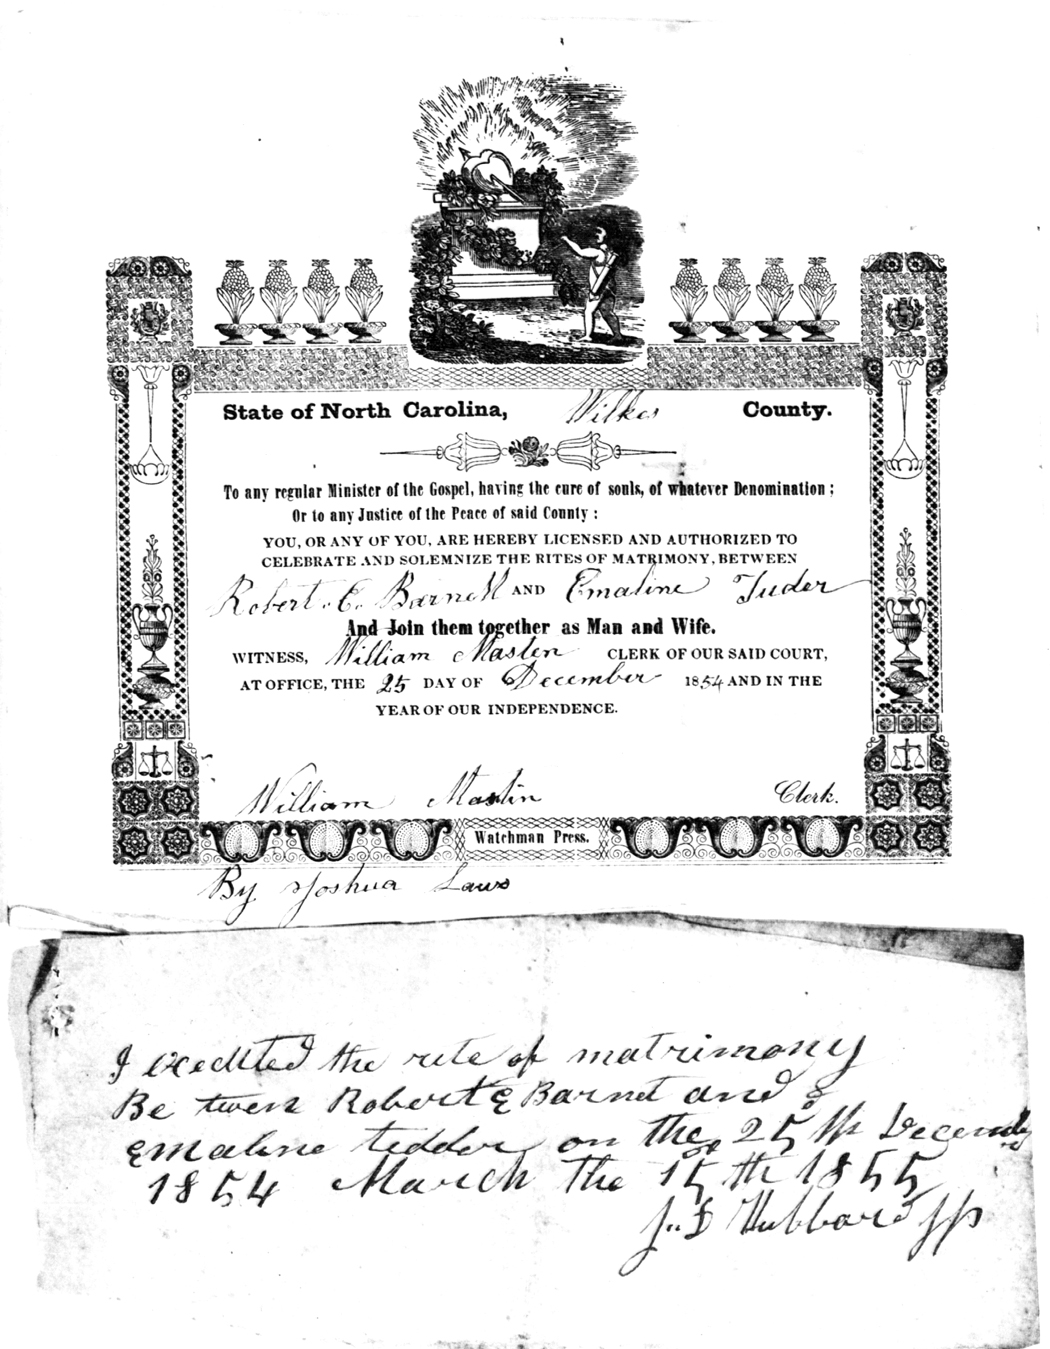 State of North Carolina, Wilkes County.
To any regular Minister of the Gospel, having the cure of souls, of whatever Denomination;
Or to any Justice of the Peace of said County:
YOU, OR ANY OF YOU, ARE HEREBY LICENSED AND AUTHORIZED TO
CELEBRATE AND SOLEMNIZE THE RITES OF MATRIMONY, BETWEEN
Robert E. Barnett AND Emaline Tuder
And Join them together as Man and Wife.
WITNESS, William Masten CLERK OF OUR SAID COURT,
AT OFFICE, THE 25 DAY OF December 1854 AND IN THE
YEAR OF OUR INDEPENDENCE.
William Mastin Clerk.
Watchman Press.
By Joshua Laws
I executed the rite of matrimony
Be twen Robert E Barnet and
Emaline tedder on the 25 th December
1854 March the 15 th 1855
J. L Hubbard JP